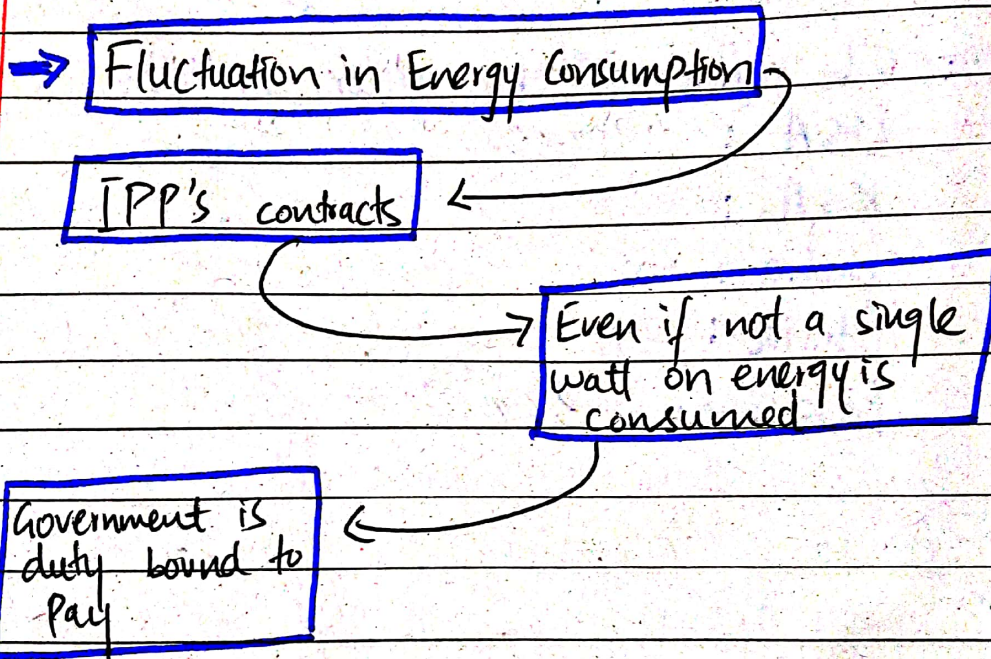 Fluctuation in Energy Consumption
IPP's contracts
Even if not a single
watt on energy is
consumed
Government is
duty bound to
Pay